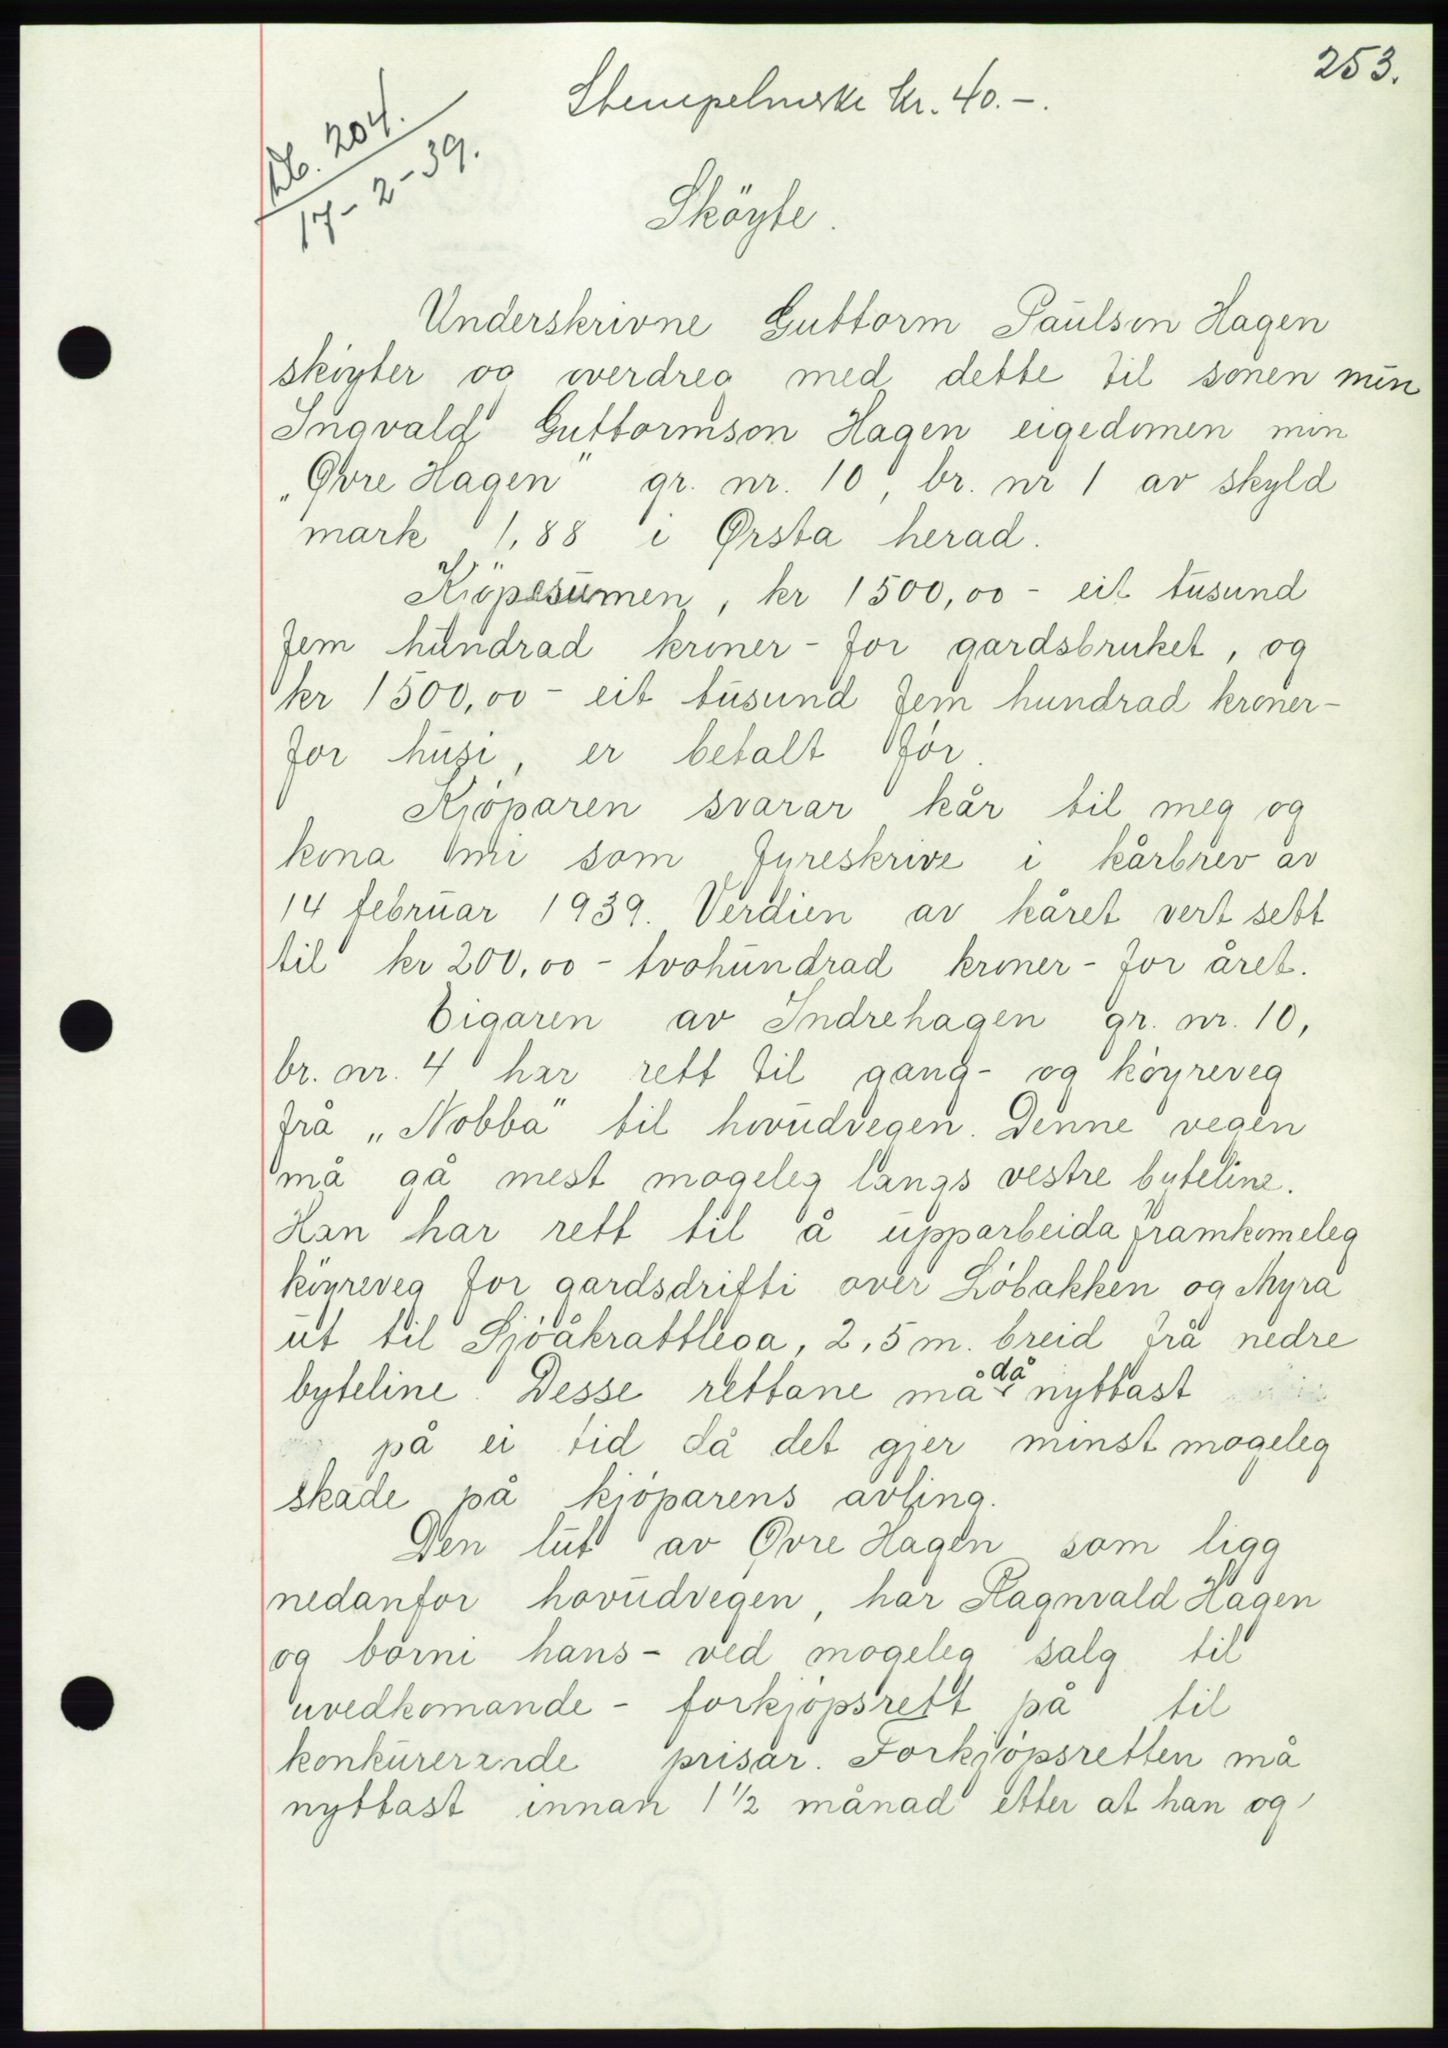 253.
Stempelmerke kr. 40.-.
Db. 204.
17-2-39.
Sköyte.
Underskrivne Guttorm Paulson Hagen
sköyter og overdreg med dette til sonen min
Ingvald Guttormson Hagen eigedomen min
„Øvre Hagen" gr. nr. 10, br. nr 1 av skyld
mark 1,88 i Ørsta herad.
Kjöpesumen, kr 1500,00 - eit tusund
fem hundrad kroner - for gardsbruket, og
kr 1500,00 - eit tusund fem hundrad kroner -
for husi, er betalt för.
Kjöparen svarar kår til meg og
kona mi som fyreskrive i kårbrev av
14 februar 1939. Verdien av kåret vert sett
til kr 200,00 - tvohundrad kroner - for året.
Eigaren av Indrehagen gr. nr. 10,
br. nr. 4 har rett til gang- og köyreveg
frå „Nobba" til hovudvegen. Denne vegen
må gå mest mogeleg langs vestre byteline.
Han har rett til å upparbeida framkomeleg
köyreveg for gardsdrifti over Löbakken og Myra
ut til Sjöåkrattlega, 2,5 m. breid frå nedre
byteline. Desse rettane må då nyttast
på ei tid då det gjer minst mogeleg
skade på kjöparens avling.
Den lut av Øvre Hagen som ligg
nedanfor hovudvegen, har Ragnvald Hagen
og borni hans - ved mogeleg salg til
uvedkomande - forkjöpsrett på til
konkurerande prisar. Forkjöpsretten må
nyttast innan 1 1/2 månad etter at han og